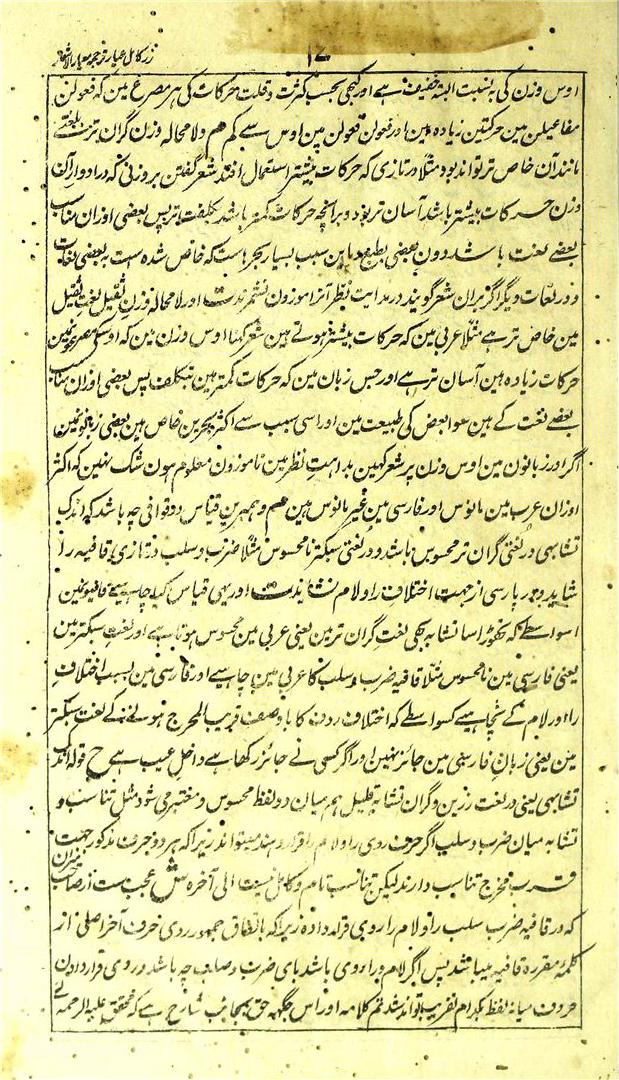 زر کامل عیار ترجمہ معیار الاشعار
۱۷
اوس وزن کی بہ نسبت البتہ خفیف ہے اور کبھی بحسب کثرت و قلت حرکات کی ہر مصرع مین کہ فعولن
مفاعیلن مین حرکتین زیادہ ہین اور فعولن فعولن مین اوس سے کم هم ولا محالہ وزن گران تر بلغتے
مانند آن خاص تر تواند بود مثلا در تازی کہ حرکات بیشتر استعمال افتد شعر گفتن بر وزنی کہ در ادوار آن
وزن حرکات بیشتر باشد آسان تر بود و برانچہ حرکات کمتر باشد بتکلف تر پس بعضی اوزان مناسب
بعضے لغت باشد دون بعضی بطبع و باین سبب بسیار بحرہاست کہ خاص شدہ است بہ بعضی لغات
و در لغات دیگر اگر بران شعر گویند در بدایت نظر آنرا موزون نشمرند ت اور لا محالہ وزن ثقیل لغت ثقیل
مین خاص تر ہے مثلا عربی مین کہ حرکات بیشتر ہوتے ہین شعر کہنا اوس وزن مین کہ اوسکے مصرعونمین
حرکات زیادہ ہین آسان تر ہے اور جس زبان مین کہ حرکات کمتر ہین بتکلف پس بعضی اوزان مناسب
بعضے لغت کے ہین سوا بعض کی طبیعت مین اور اسی سبب سے اکثر بحرین خاص ہین بعضی زبانونمین
اگر اور زبانون مین اوس وزن پر شعر کہین بداہت نظر مین ناموزون معلوم ہون شک نہین کہ اکثر
اوزان عرب مین مانوس اور فارسی مین غیر مانوس ہین هم و ہمبرین قیاس در قوافی چہ باشد کہ اندک
تشابہی در لغتی گران تر محسوس باشد و در لغتی سبکتر نامحسوس مثلا ضرب و سلب در تازی قافیہ را
شاید و در پارسی از جہت اختلاف را و لام نشاید ت اور یہی قیاس کیا چاہیے قافیونمین
اسواسطے کہ تھوڑا سا تشابہ بھی لغت گران تر مین یعنی عربی مین محسوس ہوتا ہے اور لغت سبکتر مین
یعنی فارسی مین نامحسوس مثلا قافیہ ضرب و سلب کا عربی مین چاہیے اور فارسی مین بسبب اختلاف
را اور لام کے نچاہیے کسواسطے کہ اختلاف ردف کا باوصف قریب المخرج ہونے کے لغت سبکتر
مین یعنی زبان فارسی مین جائز نہین اور اگر کسی نے جائز رکھا ہے داخل عیب ہے ح قولہ اندک
تشابہی یعنی در لغت رزین و گران تشابہ قلیل ہم میان دو لفظ محسوس و معتبر می شود مثل تناسب و
تشابہ میان ضرب و سلب اگر حرف روی را و لام را قرار دہند میتواند زیرا کہ ہر دو حرف مذکور بجہت
قرب مخرج تناسب دارند لیکن تناسب تام و کامل نیست الی آخرہ ش عجب ست از صاحب میزان
کہ در قافیہ ضرب سلب را و لام را روی قرار دادہ زیرا کہ باتفاق جمہور روی حرف آخر اصلی از
کلمۂ مقررہ قافیہ میباشد پس اگر لام و را روی باشد بای ضرب و سلب چہ باشد و روی قرار دادن
حروف میانہ لفظ بکدام تقریب تواند شد تم کلامہ اور اس جگہ حق بجانب شارح ہے کہ محقق علیہ الرحمہ نے